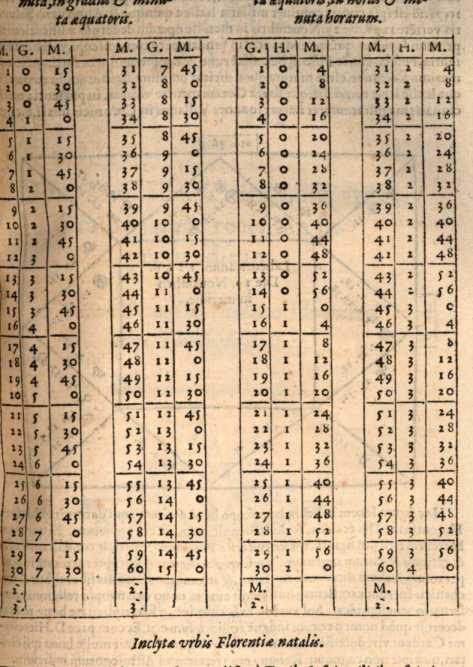 nuta, in gradus & minu- ta æquatoris, in horis & mi-
ta æquatoris. nuta horarum.
M. G. M. M. G. M. G. H. M. M. H. M.
1 0 15 31 7 45 1 0 4 31 2 4
2 0 30 32 8 0 2 0 8 32 2 8
3 0 45 33 8 15 3 0 12 33 2 12
4 1 0 34 8 30 4 0 16 34 2 16
5 1 15 35 8 45 5 0 20 35 2 20
6 1 30 36 9 0 6 0 24 36 2 24
7 1 45 37 9 15 7 0 28 37 2 28
8 2 0 38 9 30 8 0 32 38 2 32
9 2 15 39 9 45 9 0 36 39 2 36
10 2 30 40 10 0 10 0 40 40 2 40
11 2 45 41 10 15 11 0 44 41 2 44
12 3 0 42 10 30 12 0 48 42 2 48
13 3 15 43 10 45 13 0 52 43 2 52
14 3 30 44 11 0 14 0 56 44 2 56
15 3 45 45 11 15 15 1 0 45 3 0
16 4 0 46 11 30 16 1 4 46 3 4
17 4 15 47 11 45 17 1 8 47 3 8
18 4 30 48 12 0 18 1 12 48 3 12
19 4 45 49 12 15 19 1 16 49 3 16
20 5 0 50 12 30 20 1 20 50 3 20
21 5 15 51 12 45 21 1 24 51 3 24
22 5 30 52 13 0 22 1 28 52 3 28
23 5 45 53 13 15 23 1 32 53 3 32
24 6 0 54 13 30 24 1 36 54 3 36
25 6 15 55 13 45 25 1 40 55 3 40
26 6 30 56 14 0 26 1 44 56 3 44
27 6 45 57 14 15 27 1 48 57 3 48
28 7 0 58 14 30 28 1 52 58 3 52
29 7 15 59 14 45 29 1 56 59 3 56
30 7 30 60 15 0 30 2 0 60 4 0
2. 2. M. M.
3. 3. 2. 2.
Inclytæ vrbis Florentiæ natalis.